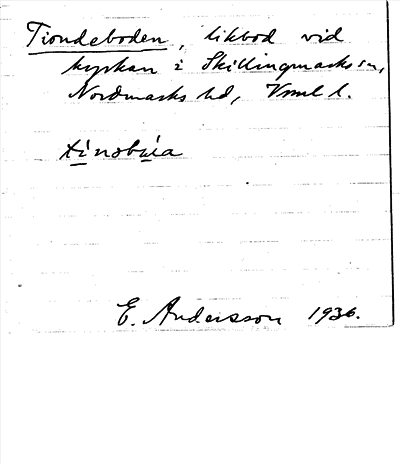 Tiondeboden, likbod vid
kyrkan i Skillingmarks sn,
Nordmarks hd, Vrml l.
tinobúa
E. Andersson 1936.